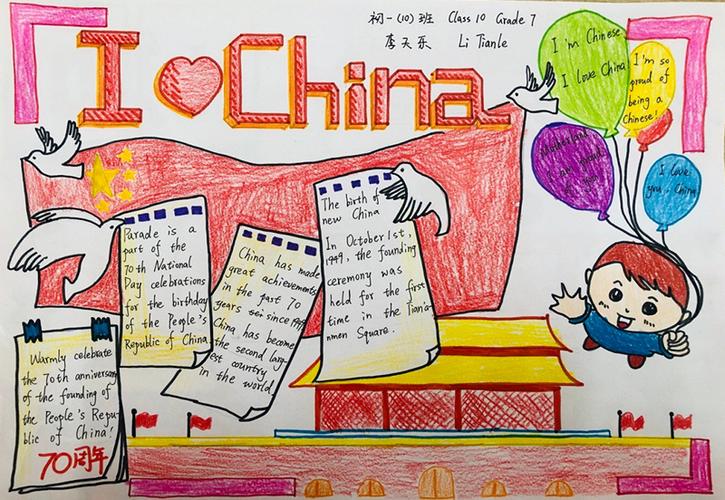 初一(10)班 Class 10 Grade 7
李天乐 Li Tianle
I China
I'm Chinese
I love China
I'm so
proud of
being a
Chinese!
Motherland
I am proud
of you
I love
you, China
Parade is a
part of the
70th National
Day celebrations
for the birthday
of the People's
Republic of China
China has made
great achievements
in the past 70
years since 1949
China has become
the second larg-
est country
in the world.
The birth of
new China
In October 1st,
1949, the founding
ceremony was
held for the first
time in the Tian'a-
nmen Square.
Warmly celebrate
the 70th anniversary
of the founding of
the People's Repu-
blic of China!
70周年